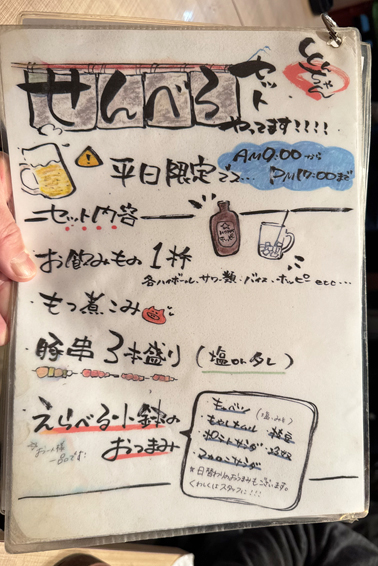 せんべろ
セット
やってます!!!!
平日限定でス…
AM9:00から
PM17:00まで
セット内容
お飲みもの1杯
各ハイボール、サワー類、バイス、ホッピー etc...
もつ煮こみ
豚串3本盛り(塩orタレ)
えらべる小鉢の
おつまみ
もやしナムル
ポテトサラダ
マカロニサラダ
※日替わりのおつまみもございます。
くわしくはスタッフに!!!